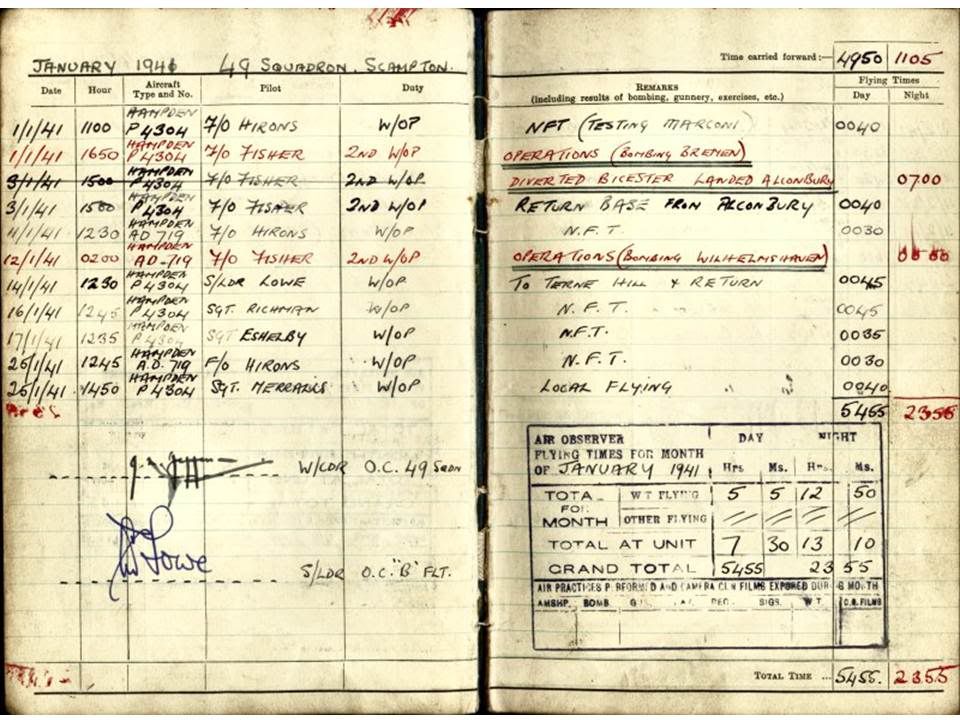 JANUARY 1941 49 SQUADRON. SCAMPTON.
Date Hour Aircraft Type and No. Pilot Duty
1/1/41 1100 HAMPDEN P4304 F/O HIRONS W/OP
1/1/41 1650 HAMPDEN P4304 F/O FISHER 2ND W/OP
3/1/41 1500 HAMPDEN P4304 F/O FISHER 2ND W/OP
3/1/41 1500 HAMPDEN P4304 F/O FISHER 2ND W/OP
1230 HAMPDEN AD 719 F/O HIRONS W/OP
12/1/41 0200 HAMPDEN AD-719 F/O FISHER 2ND W/OP
14/1/41 1230 HAMPDEN P4304 S/LDR LOWE W/OP
16/1/41 1245 HAMPDEN P4304 SGT. RICHMAN W/OP
17/1/41 1235 HAMPDEN P4304 SGT ESHELBY W/OP
1245 HAMPDEN A.D. 719 F/O HIRONS W/OP
1450 HAMPDEN P4304 SGT. W/OP
W/CDR O.C. 49 SQDN
Lowe
S/LDR O.C. "B" FLT.
Time carried forward:— 4950 1105
REMARKS
(including results of bombing, gunnery, exercises, etc.)
Flying Times
Day Night
NFT (TESTING MARCONI) 0040
OPERATIONS (BOMBING BREMEN)
DIVERTED BICESTER LANDED ALCONBURY 0700
RETURN BASE FROM ALCONBURY 0040
N.F.T. 0030
OPERATIONS (BOMBING WILHELMSHAVEN)
TO TERNE HILL & RETURN 0045
N.F.T. 0045
N.F.T. 0035
N.F.T. 0030
LOCAL FLYING 0040
5455 2355
AIR OBSERVER DAY NIGHT
FLYING TIMES FOR MONTH
OF JANUARY 1941 Hrs Ms. Hrs. Ms.
TOTAL FOR MONTH W T FLYING 5 5 12 50
OTHER FLYING
TOTAL AT UNIT 7 30 13 10
GRAND TOTAL 5455 23 55
AIR PRACTICES PERFORMED AND CAMERA GUN FILMS EXPOSED DURING MONTH
BOMB SIGS. W.T. C.G. FILMS
TOTAL TIME ... 5455. 2355